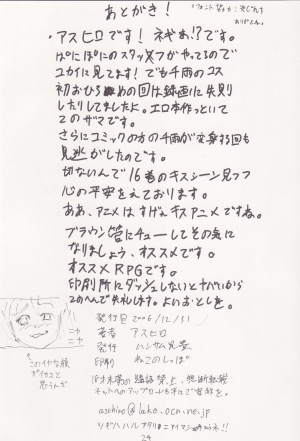 あとがき!
・アスヒロです! ネギま!?です。
ぱにぽにのスタッフがやってるので
ユカイに見てます! でも千雨のコス
初おひろめの回は録画に失敗
したりしてましたよ。エロ本作っといて
このザマです。
さらにコミックの方の千雨が変身する回も
見逃がしたのです。
切ないんで16巻のキスシーン見つつ
心の平安をえております。
ああ、アニメはすげぇキスアニメですね。
ブラウン管にチューしてその気に
なりましょう、オススメです。
オススメRPGです。
印刷所にダッシュしないとヤバいから
このへんで失礼します。よいおとしを。
発行日 2006/12/31
著者 アスヒロ
発行 ハンサム兄弟
印刷 ねこのしっぽ
18才未満の 禁止、無断転載
ネットへのアップロードも
asohiro@lake.ocn.ne.jp
ニヤ
ニヤ
↑
このイヤな顔
がイカスと
思うんだ
24